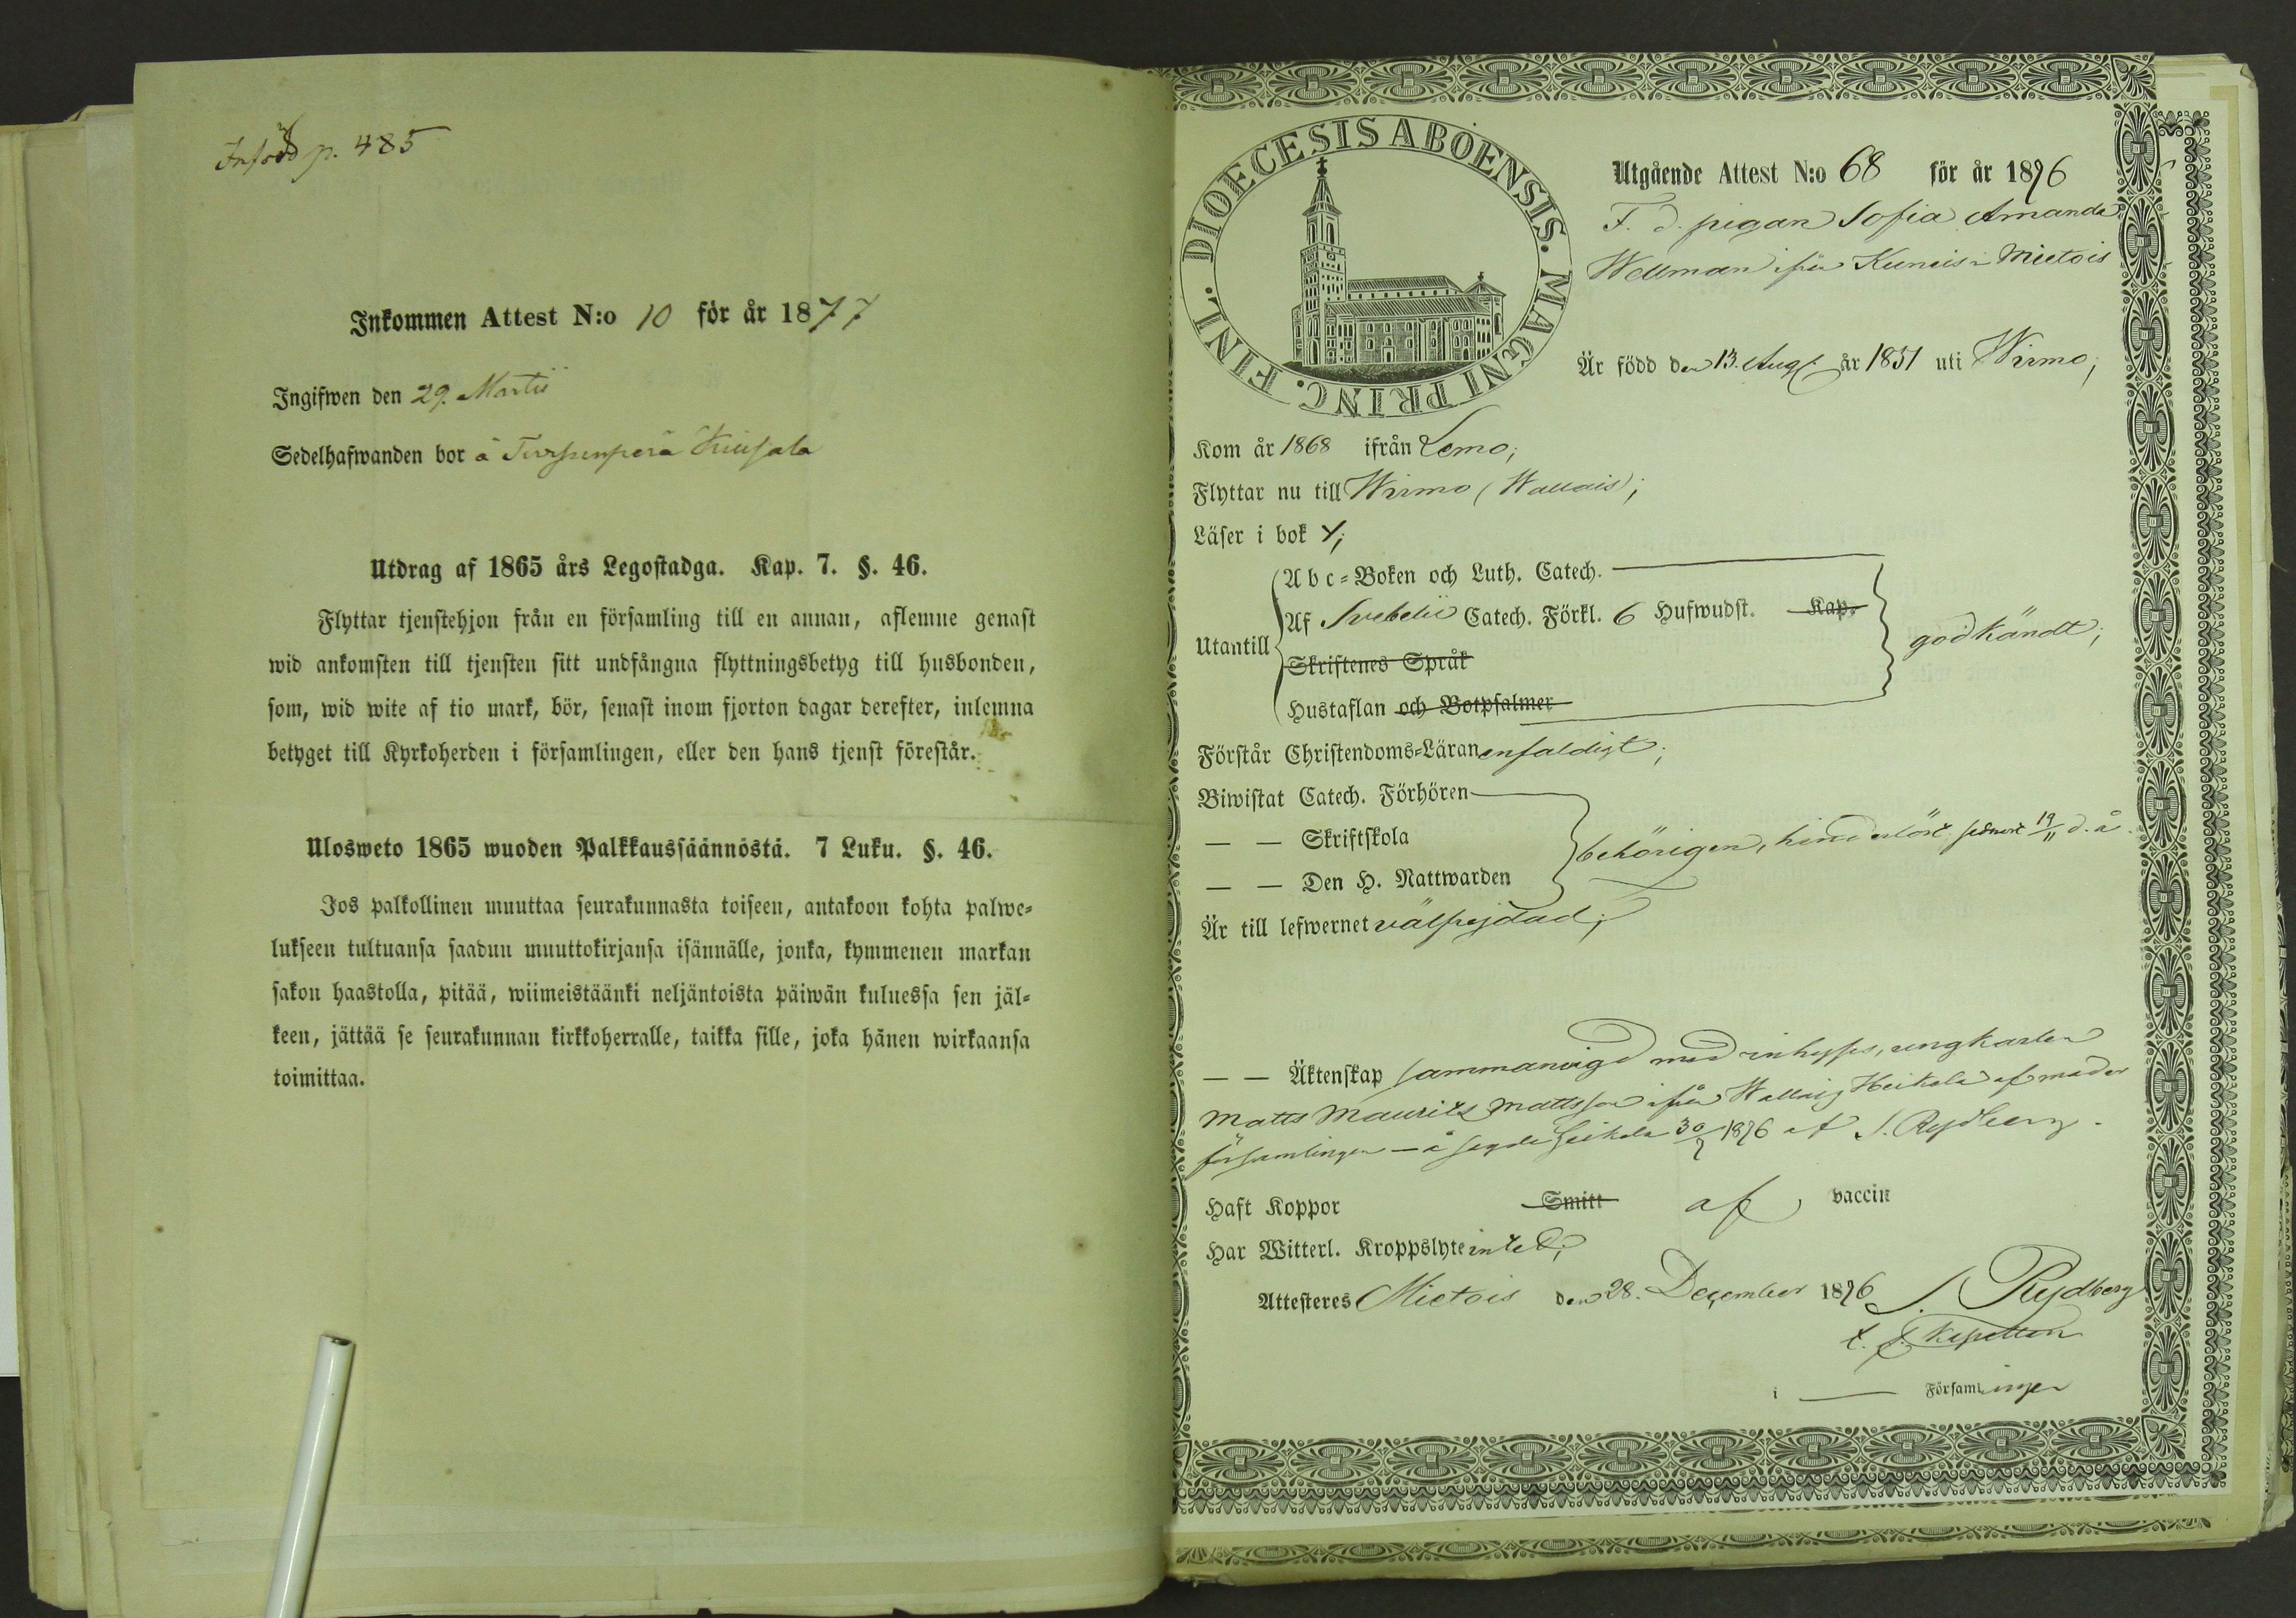 Införd p. 485
Inkommen Attest N:o 10 för år 1877
Ingifwen den 29. Martii
Sedelhafwanden bor å
Utdrag af 1865 års Legostadga. Kap. 7. §. 46.
Flyttar tjenstehjon från en församling till en annan, aflemne genast
wid ankomsten till tjensten sitt undfångna flyttningsbetyg till husbonden,
som, wid wite af tio mark, bör, senast inom fjorton dagar derefter, inlemna
betyget till Kyrkoherden i församlingen, eller den hans tjenst förestår.
Ulosweto 1865 wuoden Palkkaussäännöstä. 7 Luku. §. 46.
Jos palkollinen muuttaa seurakunnasta toiseen, antakoon kohta palwe-
lukseen tultuansa saadun muuttokirjansa isännälle, jonka, kymmenen markan
sakon haastolla, pitää, wiimeistäänki neljäntoista päiwän kuluessa sen jäl-
keen, jättää se seurakunnan kirkkoherralle, taikka sille, joka hänen wirkaansa
toimittaa.
DIOECESIS ABOENSIS. MAGNI PRINC. FINL.
Utgående Attest N:o 68 för år 1876
F. d. pigan Sofia Amanda
Wellman ifrån Kuneis i Mietois
Är född den 13. Aug. år 1851 uti Wirmo;
Kom år 1868 ifrån Lemo;
Flyttar nu till Wirmo (Wallais);
Läser i bok
Utantill
Abc-Boken och Luth. Catech.
Af Svebelii Catech. Förkl. 6 Hufwudst. Kap.
Skriftenes Språk
Hustaflan och Botpsalmer
godkändt;
Förstår Christendoms-Läran enfaldigt;
Biwistat Catech. Förhören
— — Skriftskola
— — Den H. Nattwarden
behörigen, hinderlöst. sednast 19/11 d. å.
Är till lefwernet välfrejdad;
— — Äktenskap sammanvigd med inhyses, ungkarlen
Matts Maurits Mattsson ifrån Wallais Heikola af moder
församlingen — å sagde Heikola 30/7 1876 af S. Rydberg.
Haft Koppor Smitt af vaccin
Har Witterl. Kroppslyte intet;
Attesteres Mietois den 28. December 1876 S. Rydberg
t. f. Kapellan
i — Församlingen